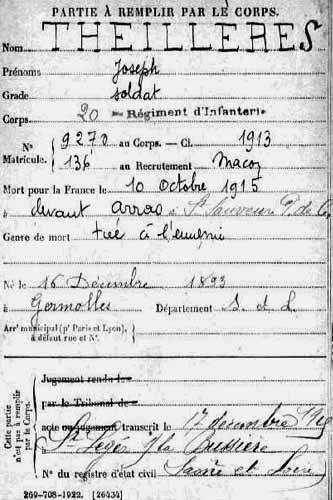 PARTIE À REMPLIR PAR LE CORPS.
Nom THEILLERES
Prénoms Joseph
Grade soldat
Corps 20 me Régiment d'Infanterie
N° 9270 au Corps. — Cl. 1913
Matricule. 136 au Recrutement Macon
Mort pour la France le 10 Octobre 1915
à devant Arras à St Sauveur P. de C.
Genre de mort tué à l'ennemi
Né le 16 Décembre 1893
à Germolles Département S. et L.
Arrt municipal (pr Paris et Lyon),
à défaut rue et N°.
Cette partie n'est pas à remplir par le Corps.
Jugement rendu le
par le Tribunal de
acte ou jugement transcrit le 17 décembre
St Léger s/ la Bussière
N° du registre d'état civil Saône et Loire
269-708-1922. [26434]